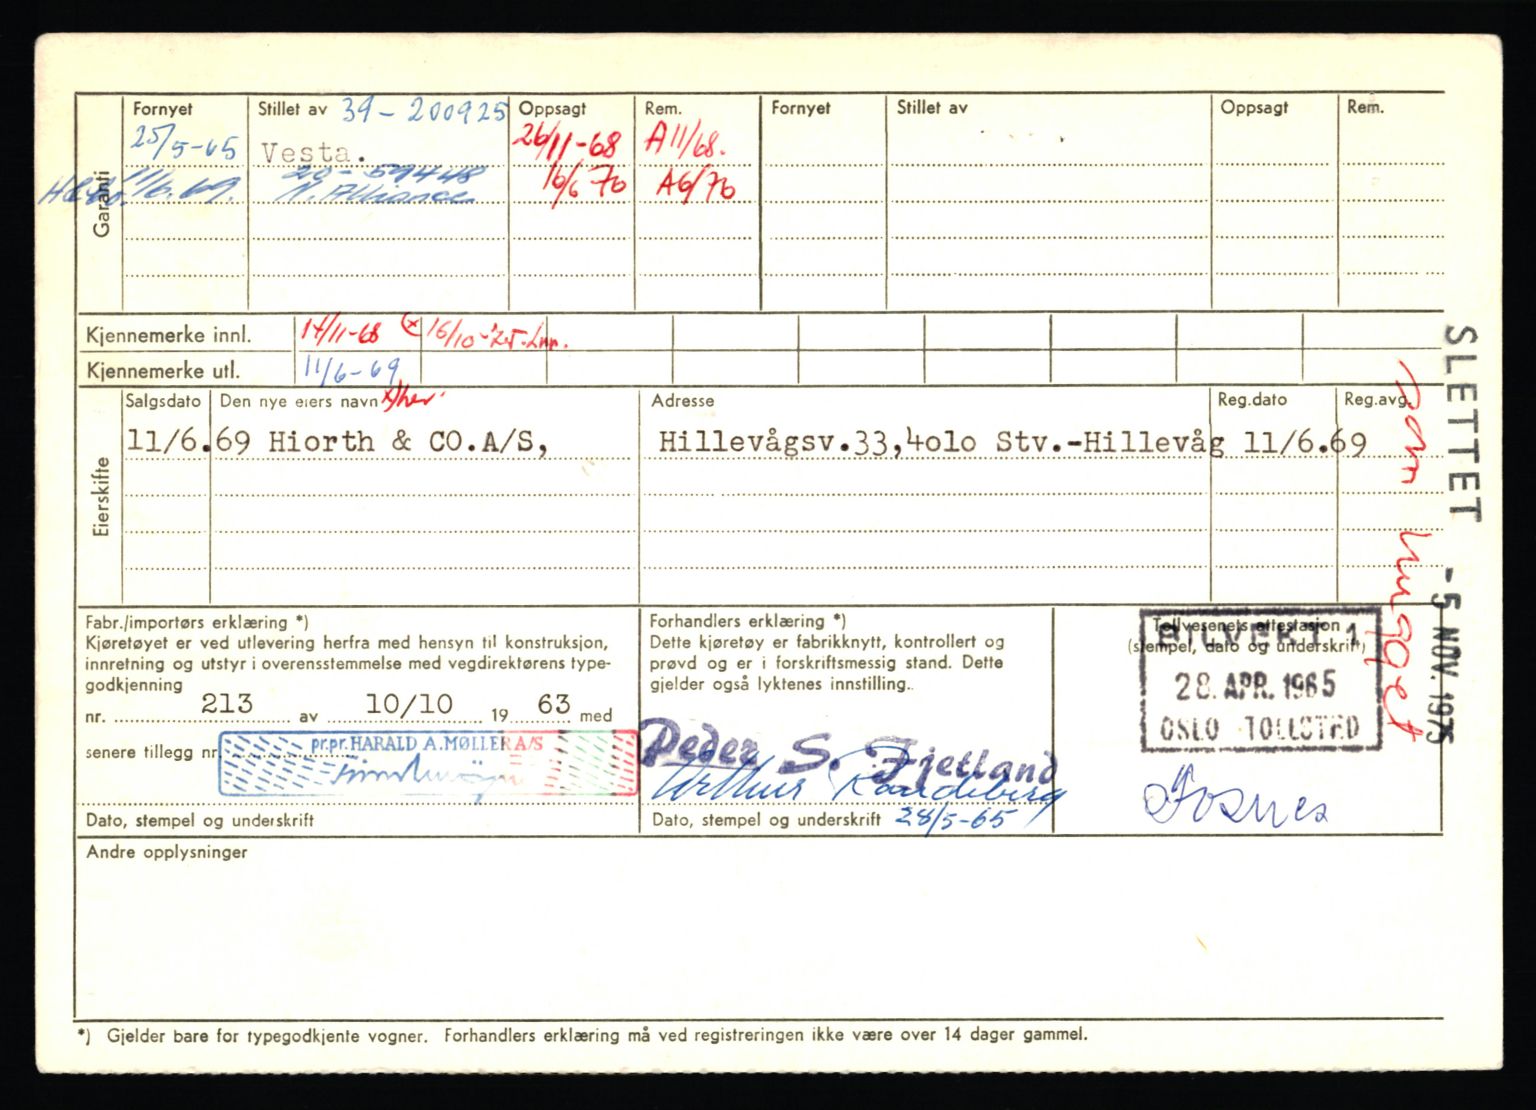 Fornyet Stillet av 39-200925 Oppsagt Rem. Fornyet Stillet av Oppsagt Rem.
25/5-65 Vesta. 26/11-68 A11/68.
11/6.69. 20-59448 16/6 70 A6/70
N. Alliance
Garanti
Kjennemerke innl. 14/11-68 (x 16/10-'75.
Kjennemerke utl. 11/6-69
Salgsdato Den nye eiers navn Adresse Reg.dato Reg.avg.
11/6.69 Hiorth & CO.A/S, Hillevågsv.33,4olo Stv.-Hillevåg 11/6.69
Eierskifte
SLETTET - 5 NOV. 1975
som hugget
Fabr./importørs erklæring *)
Kjøretøyet er ved utlevering herfra med hensyn til konstruksjon,
innretning og utstyr i overensstemmelse med vegdirektørens type-
godkjenning
nr. 213 av 10/10 19 63 med
senere tillegg nr.
pr.pr. HARALD A. MØLLER A/S
Dato, stempel og underskrift
Forhandlers erklæring *)
Dette kjøretøy er fabrikknytt, kontrollert og
prøvd og er i forskriftsmessig stand. Dette
gjelder også lyktenes innstilling.
Peder S. Fjetland
Arthur Randeberg
Dato, stempel og underskrift 28/5-65
Tollvesenets attestasjon
(stempel, dato og underskrift)
BILVEKT 1
28. APR. 1965
OSLO TOLLSTED
Fosnes
Andre opplysninger
*) Gjelder bare for typegodkjente vogner. Forhandlers erklæring må ved registreringen ikke være over 14 dager gammel.